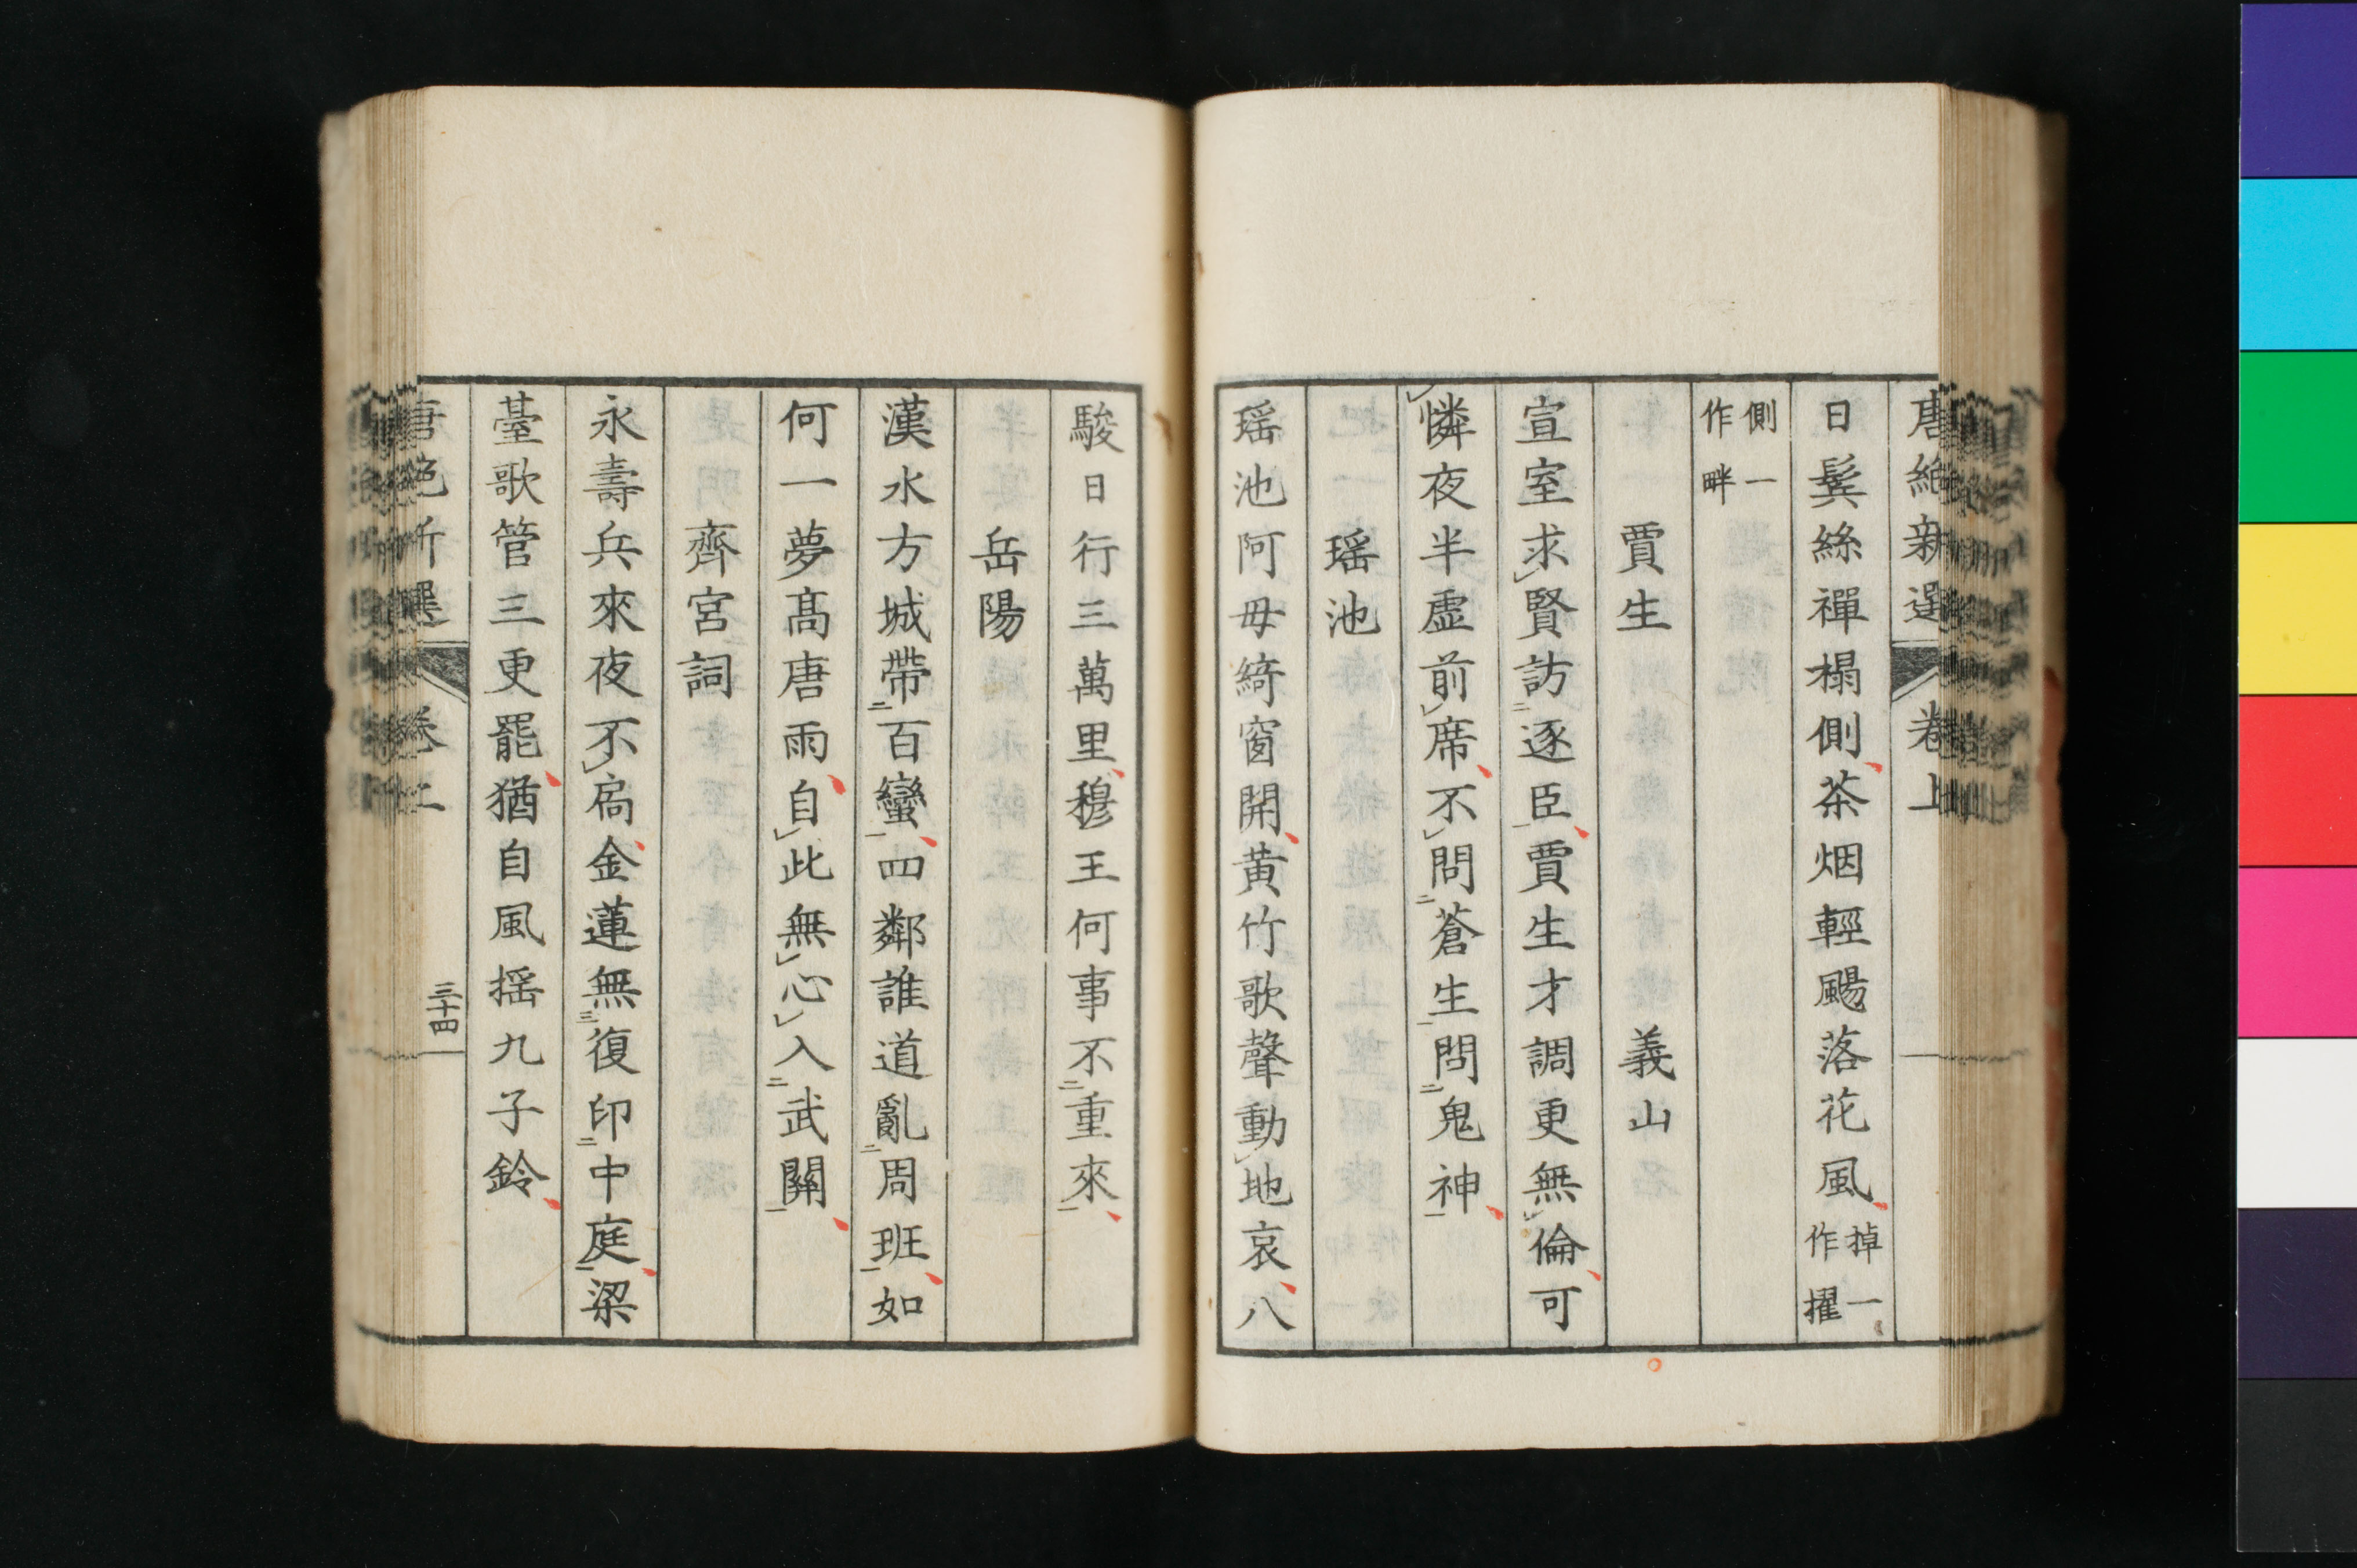 唐絶新選 卷上
日鬂絲禪榻側茶烟輕颺落花風掉一作擢
側一作畔
賈生 義山
宣室求賢訪逐臣賈生才調更無倫可
憐夜半虛前席不問蒼生問鬼神
瑶池
瑶池阿母綺窗開黄竹歌聲動地哀八
駿日行三萬里穆王何事不重來
岳陽
漢水方城帶百蠻四鄰誰道亂周班如
何一夢髙唐雨自此無心入武關
齊宮詞
永壽兵來夜不扃金蓮無復印中庭梁
臺歌管三更罷猶自風揺九子鈴
唐絶新選 卷上 三十四